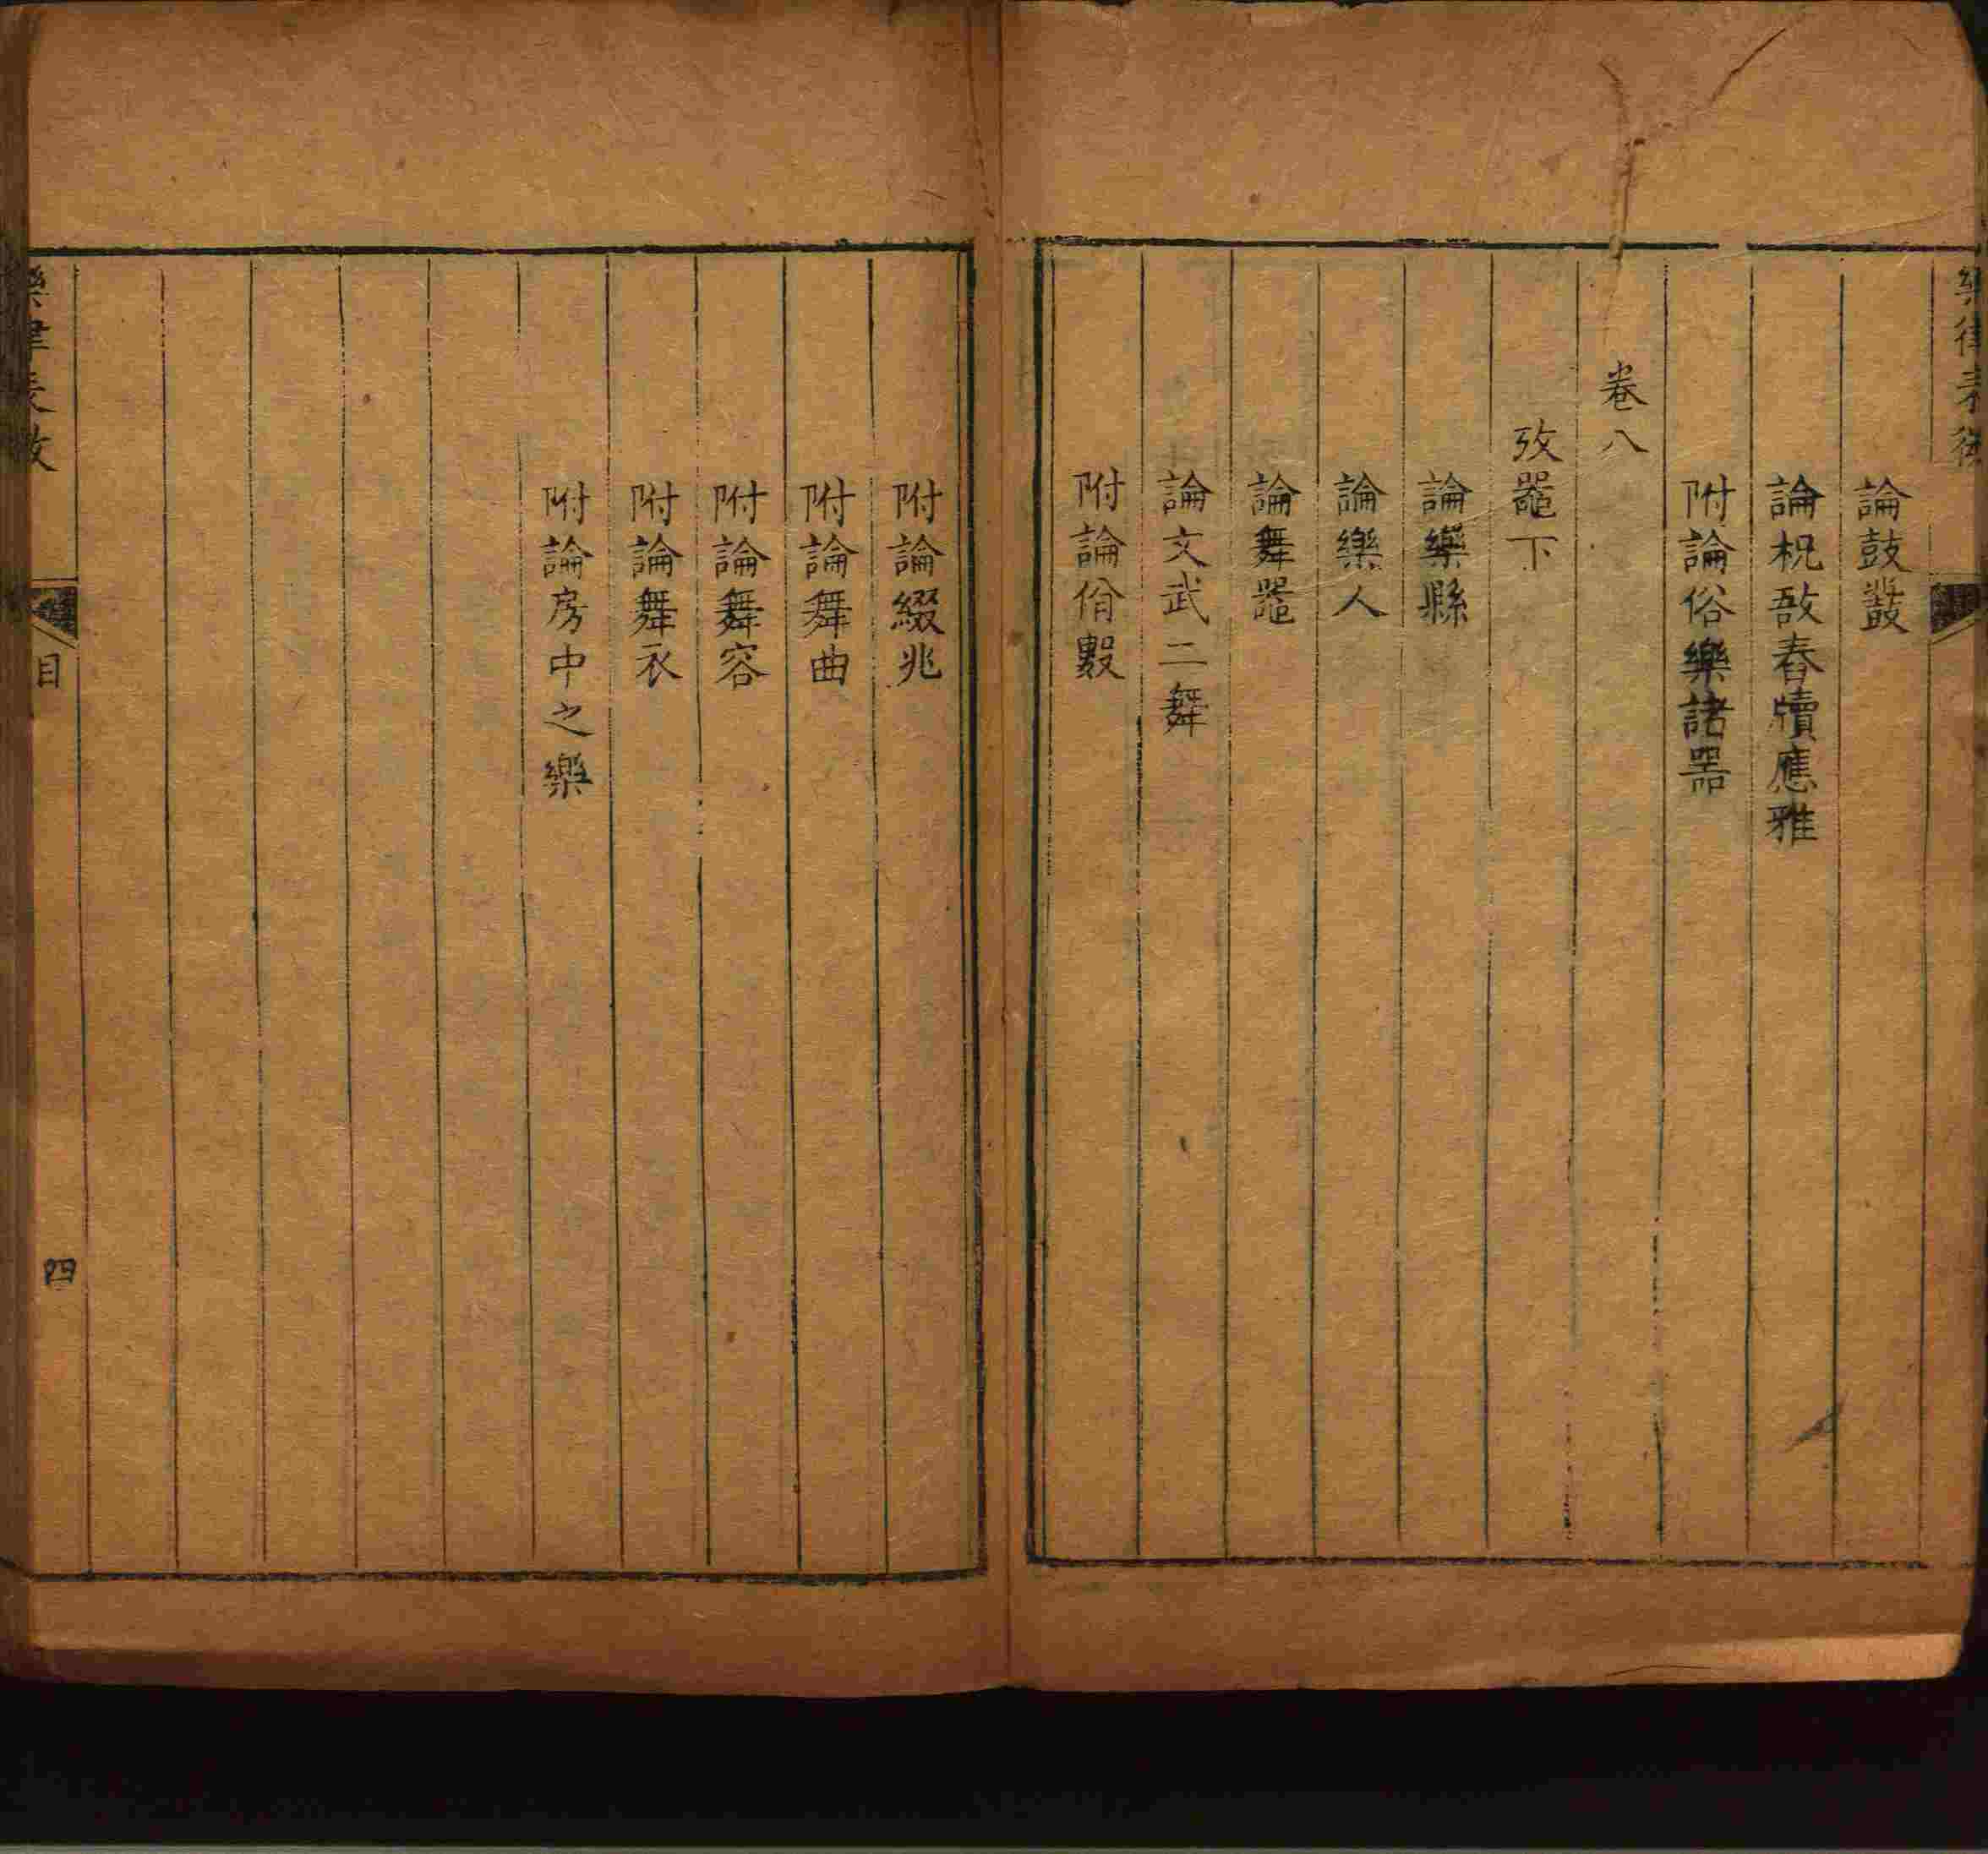 樂律表微
論鼓鼗
論柷敔舂牘應雅
附論俗樂諸器
卷八
攷噐下
論樂縣
論樂人
論舞噐
論文武二舞
附論佾數
附論綴兆
附論舞曲
附論舞容
附論舞衣
附論房中之樂
樂律表微
目
四